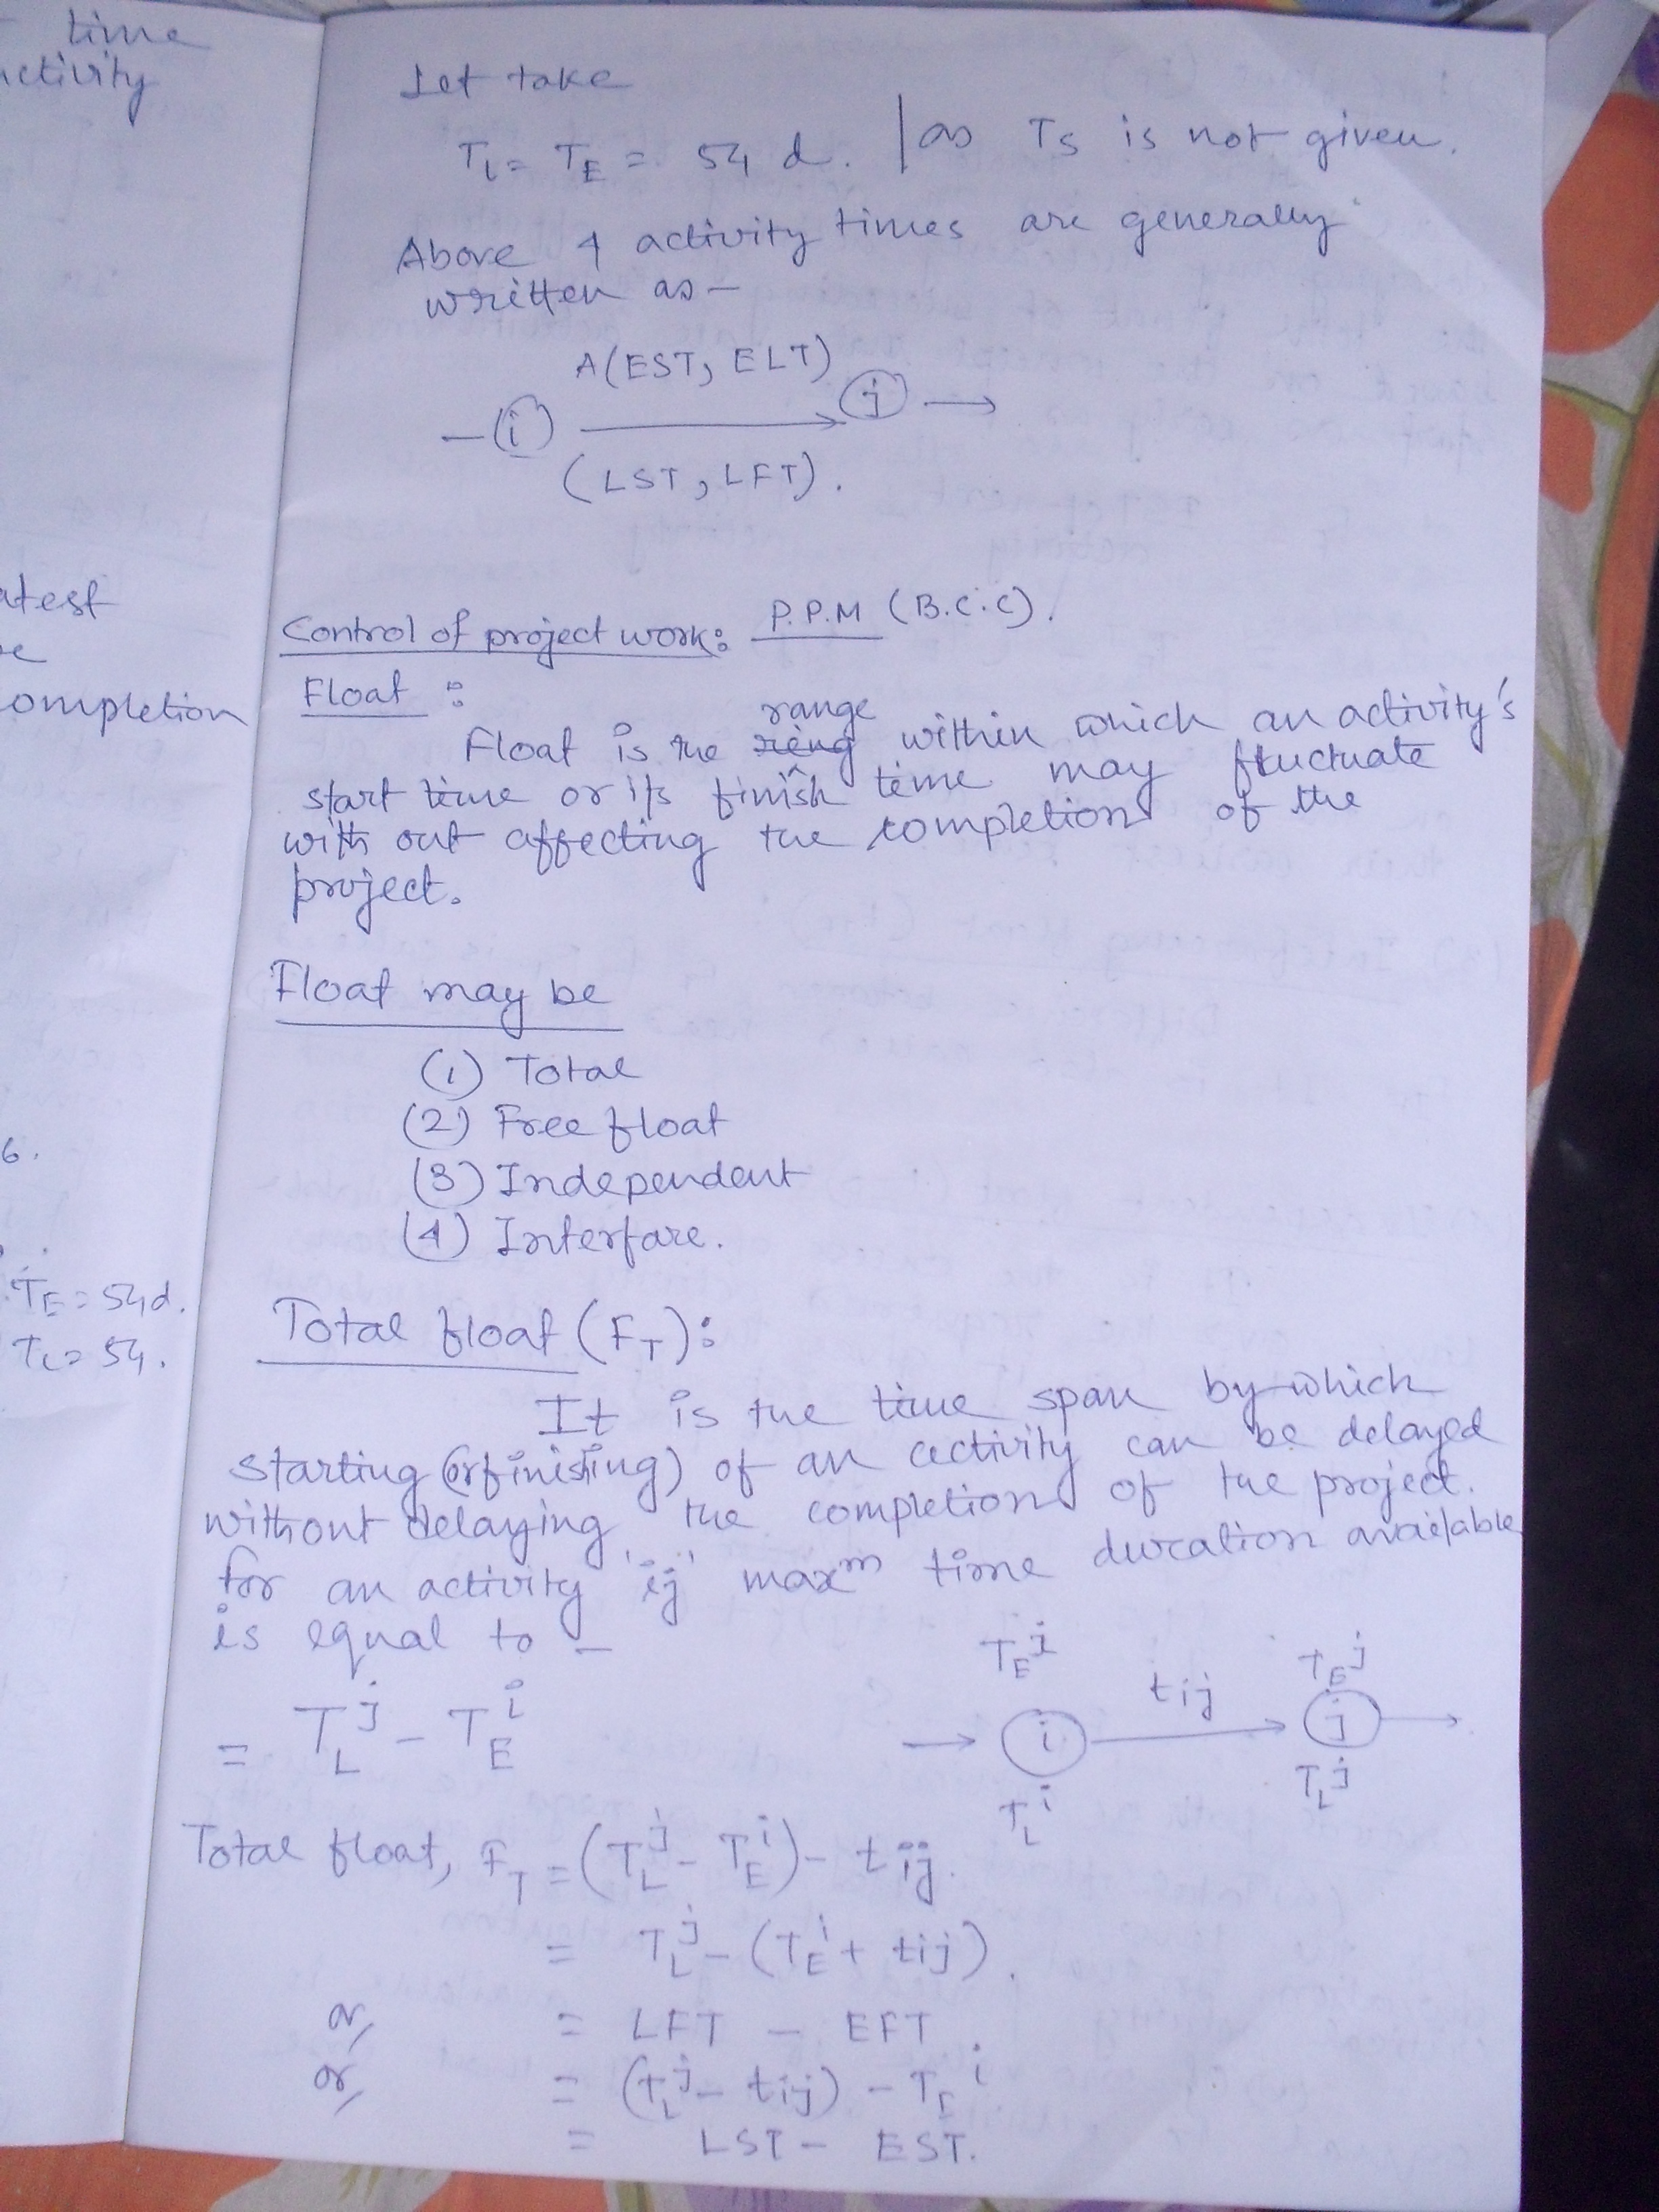 time
ctivity
atest
e
ompletion
6.
TE = 54d.
TL = 54.
Let take
TL = TE = 54 d. | as Ts is not given.
Above 4 activity times are generally
written as –
A(EST, ELT)
i j
(LST, LFT).
Control of project work: P.P.M (B.C.C).
Float :
range
Float is the reing within which an activity's
start time or its finish time may fluctuate
with out affecting the completion of the
project.
Float may be
(1) Total
(2) Free float
(3) Independent
(4) Interfare.
Total float (FT):
It is the time span by which
starting (or finishing) of an activity can be delayed
without delaying the completion of the project.
for an activity 'ij' maxm time duration available
is equal to –
= TL^j – TE^i
TE^i tij TE^j
i j
TL^i TL^j
Total float, FT = (TL^j – TE^i) – tij.
= TL^j – (TE^i + tij).
or, = LFT – EFT.
or, = (TL^j – tij) – TE^i
= LST – EST.